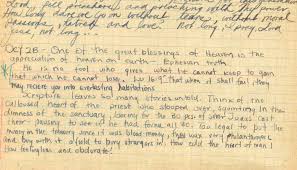 Lord, full
How long can I go on without tears, without moral
rebuke and love not long, I pray, Lord
Jesus, not long...
OCT 28 - One of the great blessings of Heaven is the
appreciation of heaven on earth - Ephesian truth.
He is no fool who gives what he cannot keep to gain
that which he cannot lose. Lk 16-9 "that when it shall fail, they
may receive you into everlasting habitations.
Scripture leaves so many stories untold. Think of the
calloused heart of the priest who stooped over, squinting in the
dimness of the sanctuary, looking for the 30 pcs of silver Judas cast
there: pausing to see if he had found all 30. Too legal to put the
money in the treasury since it was blood-money; they wax very philanthropic
and buy with it a field to bury strangers in. How cold the heart of man!
How feelingless and obdurate!